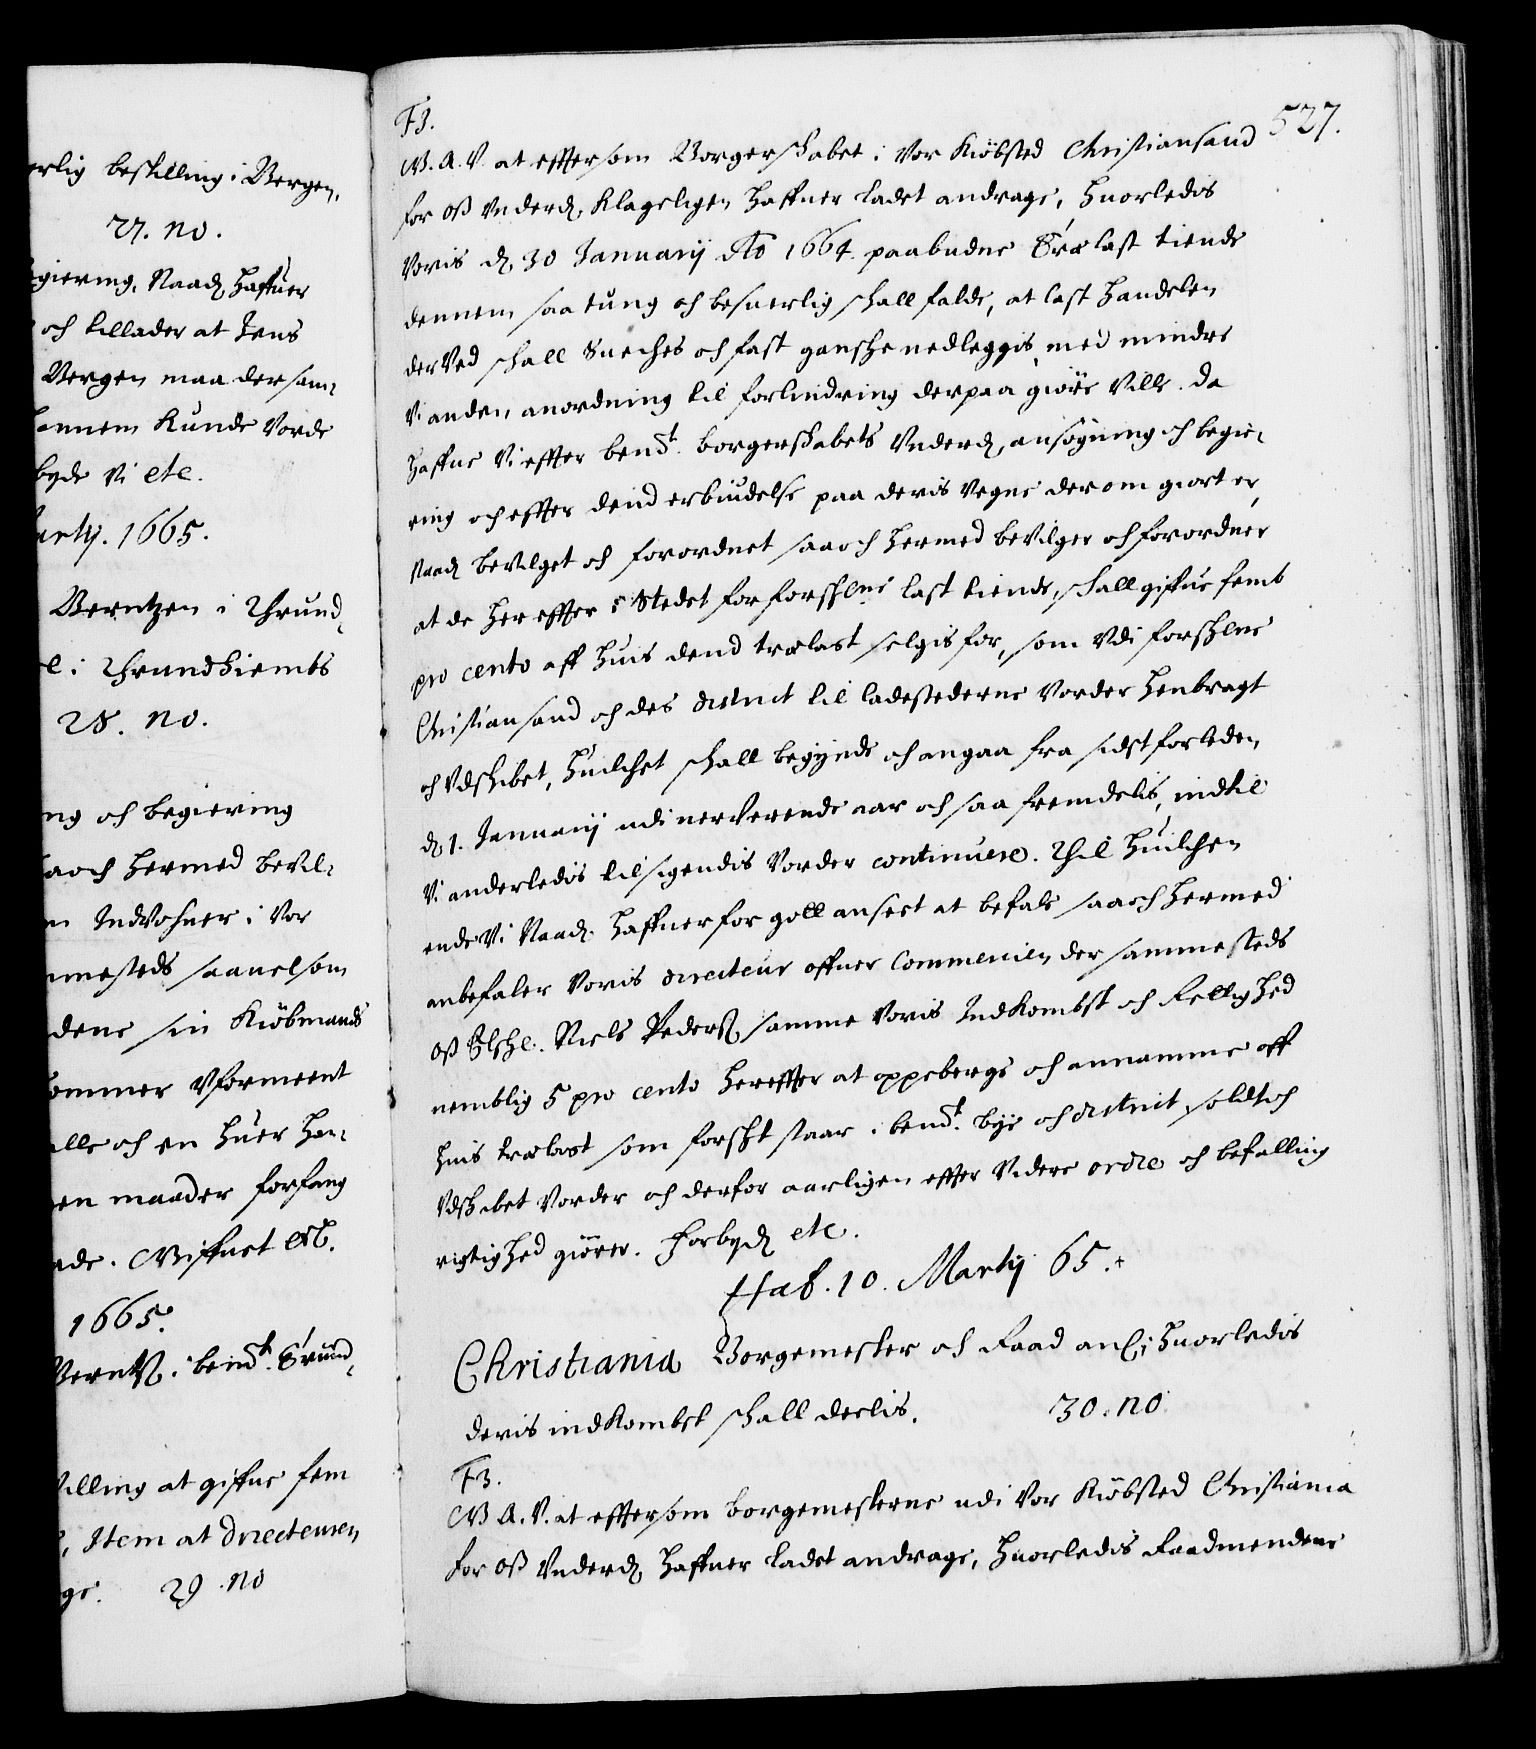 erlig bestilling i Bergen.
27. no.
giering, Naad haffuer
och tillader at Jens
Bergen maa der sam¬
hannem kunde vorde
byde Vi etc.
arty. 1665.
Berntzen i Thrund¬
e i Thrundhiembs
28. no.
ng och begiering
saa och hermed bevil¬
m Indvohner i vor
mmesteds saauelsom
dene sin Kiøbmands
kommer Vformeent
alle och en huer han¬
en maader forfang
ade. Giffuet etc.
1665.
Berntz. i bemt. Trund¬
villing at giffue fem
, Item at directeuren
ge. 29. no
527.
F3.
G. A. V. at effter som Borgerskabet i vor Kiøbsted Christiansand
for oss Underd. klageligen haffuer ladet andrage, huorledis
voris d. 30 Januarij Ao 1664. paabudne Træ last tiende
dennem saa tung och besuerlig skall falde, at last handelen
derved skall Sueches och fast gandske nedleggis, med mindre
Vi anden anordning til forlindring derpaa giøre ville. da
haffue Vi effter bemt. borgerskabets Underd. ansøgning och begie¬
ring och effter dend erbiudelse paa deris vegne derom giort er
Naad. bevilget och forordnet saa och hermed bevilger och forordner
at de her effter i Stedet for forskne last tiende, skall giffue femb
pro cento aff huis dend trælast selgis for, som udi forskne
Christiansand och des district til ladestederne vorder henbragt
och udskibet, huilchet skall begynde och angaa fra sidst forleden
d. 1. Januarij udi nerverende aar och saa fremdelis, indtil
Vi anderledis tilsigendis vorder continuere. Thil huilchen
ende Vi Naad. haffuer for gott anseet at befale saa och hermed
anbefaler voris directeur offuer Commercien der sammesteds
oss Elskl. Niels Peders. samme voris Indkombst och Rettighed
nemblig 5 pro cento hereffter at oppeberge och annamme aff
huis trælast som forskt staar i bemt. bye och district, soldt och
udskibet vorder och derfor aarligen effter videre ordre och befalling
rigtighed giører. Forbyd. etc.
Haf. 10. Martij 65.
Christiania Borgemester och Raad anl. huorledis
deris indkombst skall deelis. 30. no
F3.
G. A. V. at effter som borgemesterne udi vor Kiøbsted Christiania
for oss Underd. haffuer ladet andrage, huorledis Raadmendene